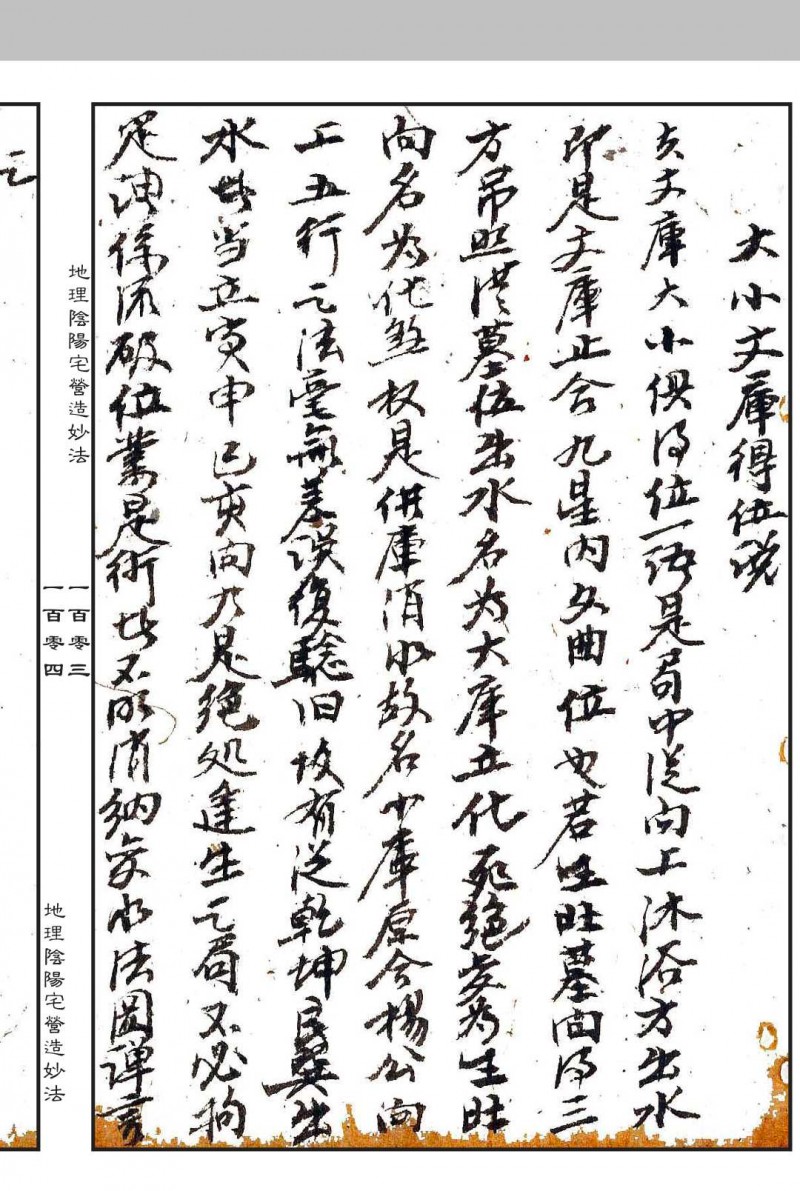 大小文庫得位說
夫文庫大小俱得位一語是局中從向上沐浴方出水
即是文庫止合九星内文曲位也若生旺墓向得三
方吊照從墓位出水名为大庫立化死絕処为生旺
向名为化煞权是借庫消水故名小庫原合楊公向
上五行之法毫無差误復驗旧坟有从乾坤艮巽出
水者当立寅申巳亥向乃是絕処逢生之局不必拘
泥冲保流破位業是術者不明消納立水法圖譚言
之
地理陰陽宅營造妙法
一百零三
一百零四
地理陰陽宅營造妙法